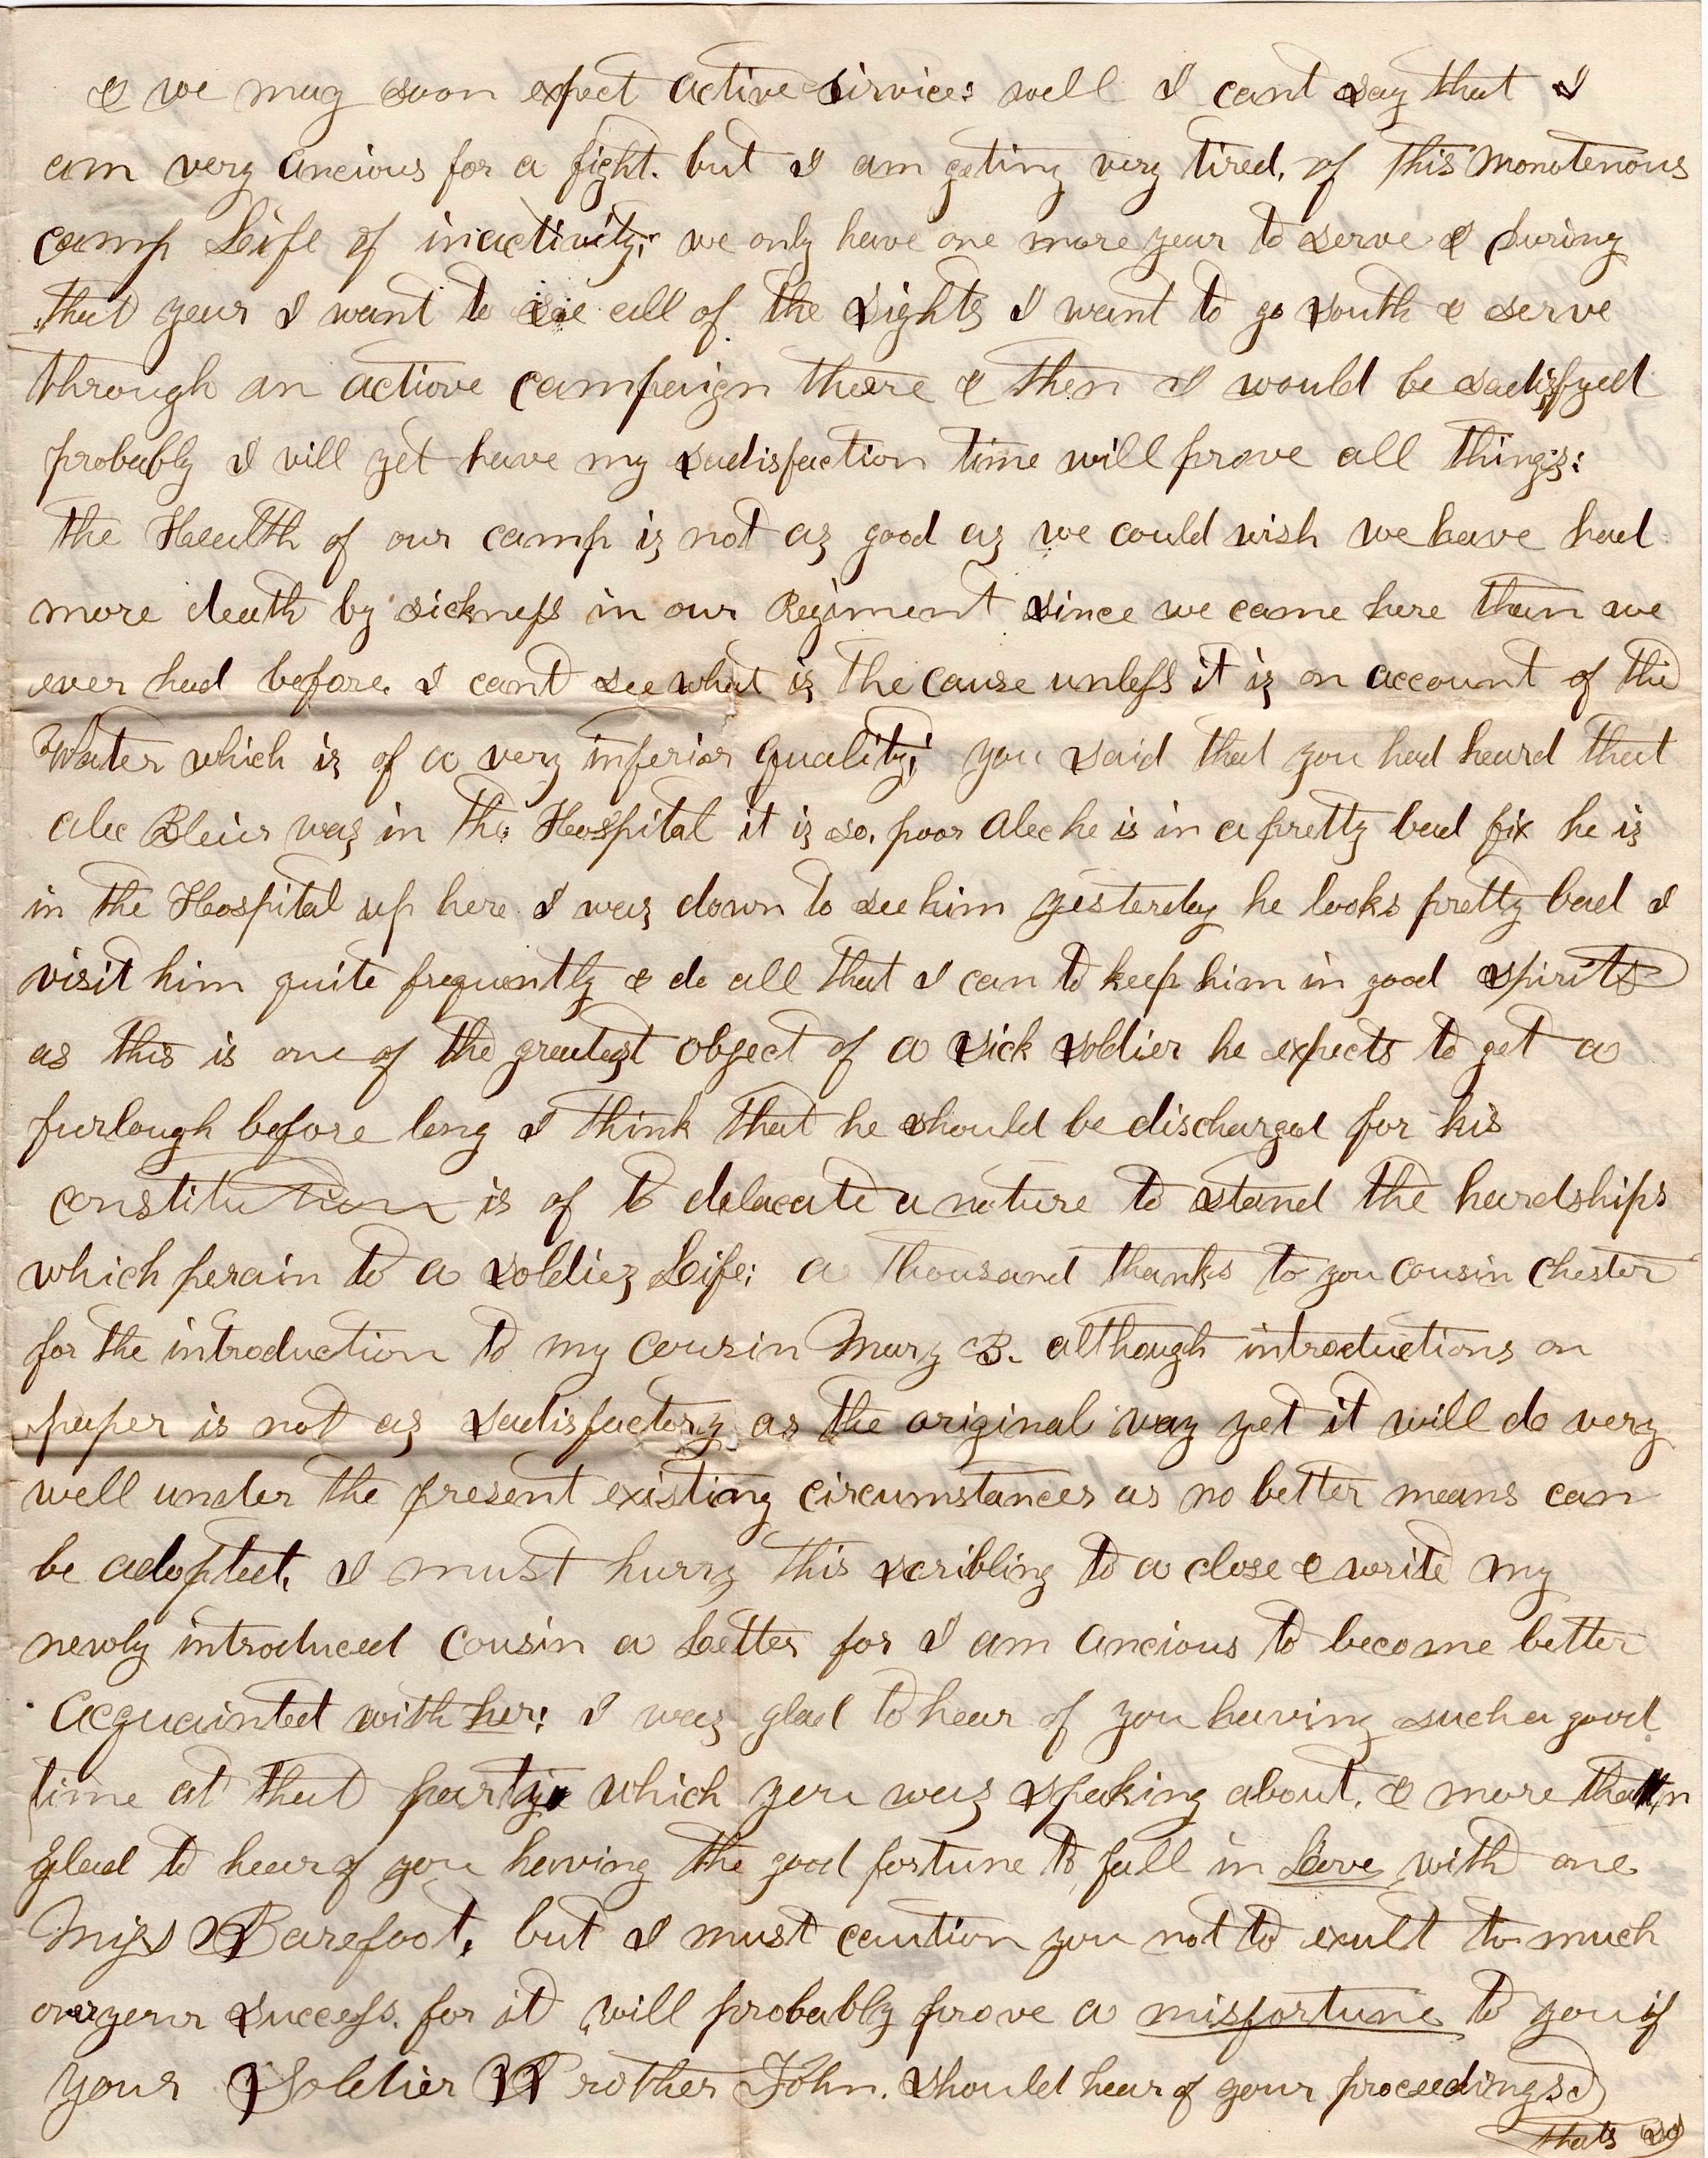 & we may soon expect active sirvice: well I cant say that I
am very ancious for a fight. but I am geting very tired, of this monotenous
camp Life of inactivity; we only have one more year to serve & during
that year I want to see all of the sights I want to go south & serve
through an active campaign there & then I would be sadisfyed
probably I vill yet have my sadisfaction time will prove all things:
the Health of our camp is not as good as we could wish we have had
more death by sickness in our Regiment since we came here than we
ever had before. I cant see what is the cause unless it is on account of the
Water which is of a very inferior quality; you said that you had heard that
alec Blair was in the Hospital it is so. poor Alec he is in a pretty bad fix he is
in the Hospital up here I was down to see him yesterday he looks pretty bad I
visit him quite frequently & do all that I can to keep him in good spirits
as this is one of the greatest object of a sick soldier he expects to get a
furlough before long I think that he should be discharged for his
constitution is of to delacate a nature to stand the hardships
which perain to a soldies Life; a thousand thanks to you cousin Chester
for the introduction to my cousin Mary B. although introductions on
paper is not as sadisfactory as the original way yet it will do very
well under the present existing circumstances as no better means can
be adopted, I must hurry this scribling to a close & write my
newly introduced cousin a Letter for I am ancious to become better
Acquainted with her: I was glad to hear of you having such a good
time at that party which you was speking about. & more than
glad to hear of you having the good fortune to fall in Love with one
Miss Barefoot, but I must caution you not to exult to much
over your success. for it will probably prove a misfortune to you if
your Soldier Brother John. should hear of your proceedings
thats so